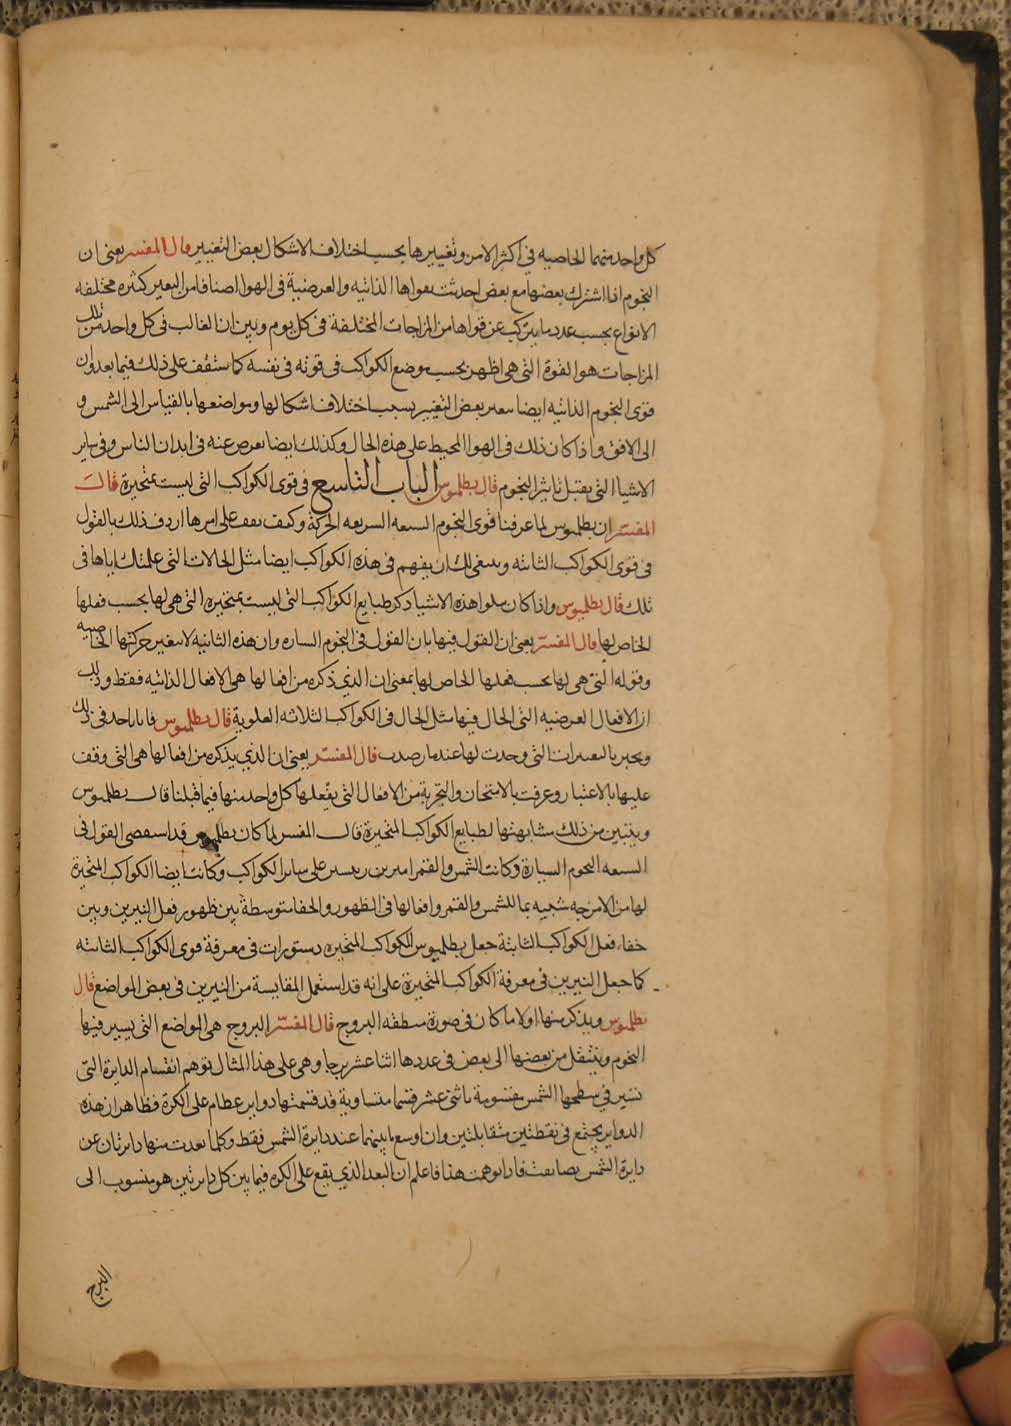 كل واحد منهما الخاصيه في اكثر الامر وتغييرها بحسب اختلاف الاشكال بعض التغيير قال المفسر يعني ان
النجوم اذا اشترك بعضها مع بعض احدثت بقواها الذاتيه والعرضية في الهوا اصنافا من التغير كثيره مختلفه
الانواع بحسب عدد ما يتركب عن قواها من المزاجات المختلفة في كل يوم وبين ان الغالب في كل واحد من تلك
المزاجات هو القوة التي هي اظهر بحسب موضع الكواكب في قوته في نفسه كما ستقف على ذلك فيما بعد وان
قوى النجوم الذاتيه ايضا بعض التغيير بسبب اختلاف اشكالها ومواضعها بالقياس الى الشمس و
الى الافق واذا كان ذلك في الهوا المحيط على هذه الحال وكذلك ايضا يعرض عنه في ابدان الناس وفي ساير
الاشيا التي يقبل تاثير النجوم قال بطلميوس الباب التاسع في قوى الكواكب التي ليست بمتحيرة قالت
المفسر ان بطلميوس لما عرفنا قوى النجوم السبعه السريعه الحركة وكيف نقف على امرها اردف ذلك بالقول
في قوى الكواكب الثابته وينبغي لك ان يفهم في هذه الكواكب ايضا مثل الحالات التي علمتك اياها في
تلك قال بطلميوس واذا كان يتلوا هذه الاشيا ذكر طبايع الكواكب التي ليست بمتحيره التي هي لها بحسب فعلها
الخاص لها قال المفسر يعني ان القول فيها بان القول في النجوم الساره وان هذه الثانية لا يتغير حركتها الخاصيه
وقوله التي هي لها بحسب فعلها الخاص لها بمعنى ان الذي ذكره من افعالها هي الافعال الذاتيه فقط وذلك
ان الافعال العرضيه التي الحال فيها مثل الحال في الكواكب الثلاثه العلوية قال بطلميوس فانا ناخد في ذلك
ونخبر بالتغيرات التي وجدت لها عند ما رصدت قال المفسر يعني ان الذي يذكره من افعالها هي التي وقف
عليها بالاعتبار وعرفت بالامتحان والتجربة من الافعال التي يفعلها كل واحد منها فيما قبلنا قال بطلميوس
ويتبين من ذلك مشابهتها لطبايع الكواكب المتحيرة قال المفسر لما كان بطلميوس قد استقصى القول في
السبعه النجوم السيارة وكانت الشمس والقمر اميرين رييسين على سائر الكواكب وكانت ايضا الكواكب المتحيرة
لها من الامزجه شبيه بما للشمس والقمر وافعالها في الظهور والخفا متوسطة بين ظهور فعل النيرين وبين
خفاء فعل الكواكب الثابتة جعل بطلميوس الكواكب المتحيره دستورات في معرفة قوى الكواكب الثابته
كما جعل النيرين في معرفة الكواكب المتحيرة على انه قد استعمل المقايسة من النيرين في بعض المواضع قال
بطلميوس ويذكر منها اولا ما كان في صورة منطقه البروج قال المفسر البروج هي المواضع التي يسير فيها
النجوم وينتقل من بعضها الى بعض في عددها اثنا عشر برجا وهي على هذا المثال نوهم انقسام الدايرة التي
تسير في سطحها الشمس مقسومة باثني عشر قسما متساوية قد قسمتها دواير عظام على الكرة فظاهر ان هذه
الدواير يجتمع في نقطتين متقابلتين وان اوسع ما بينهما عند دايرة الشمس فقط وكلما بعدت منها دايرتان عن
دايرة الشمس تضايقت فاذا توهمت هذا فاعلم ان البعد الذي يقع على الكره فيما بين كل دايرتين هو منسوب الى
البرج